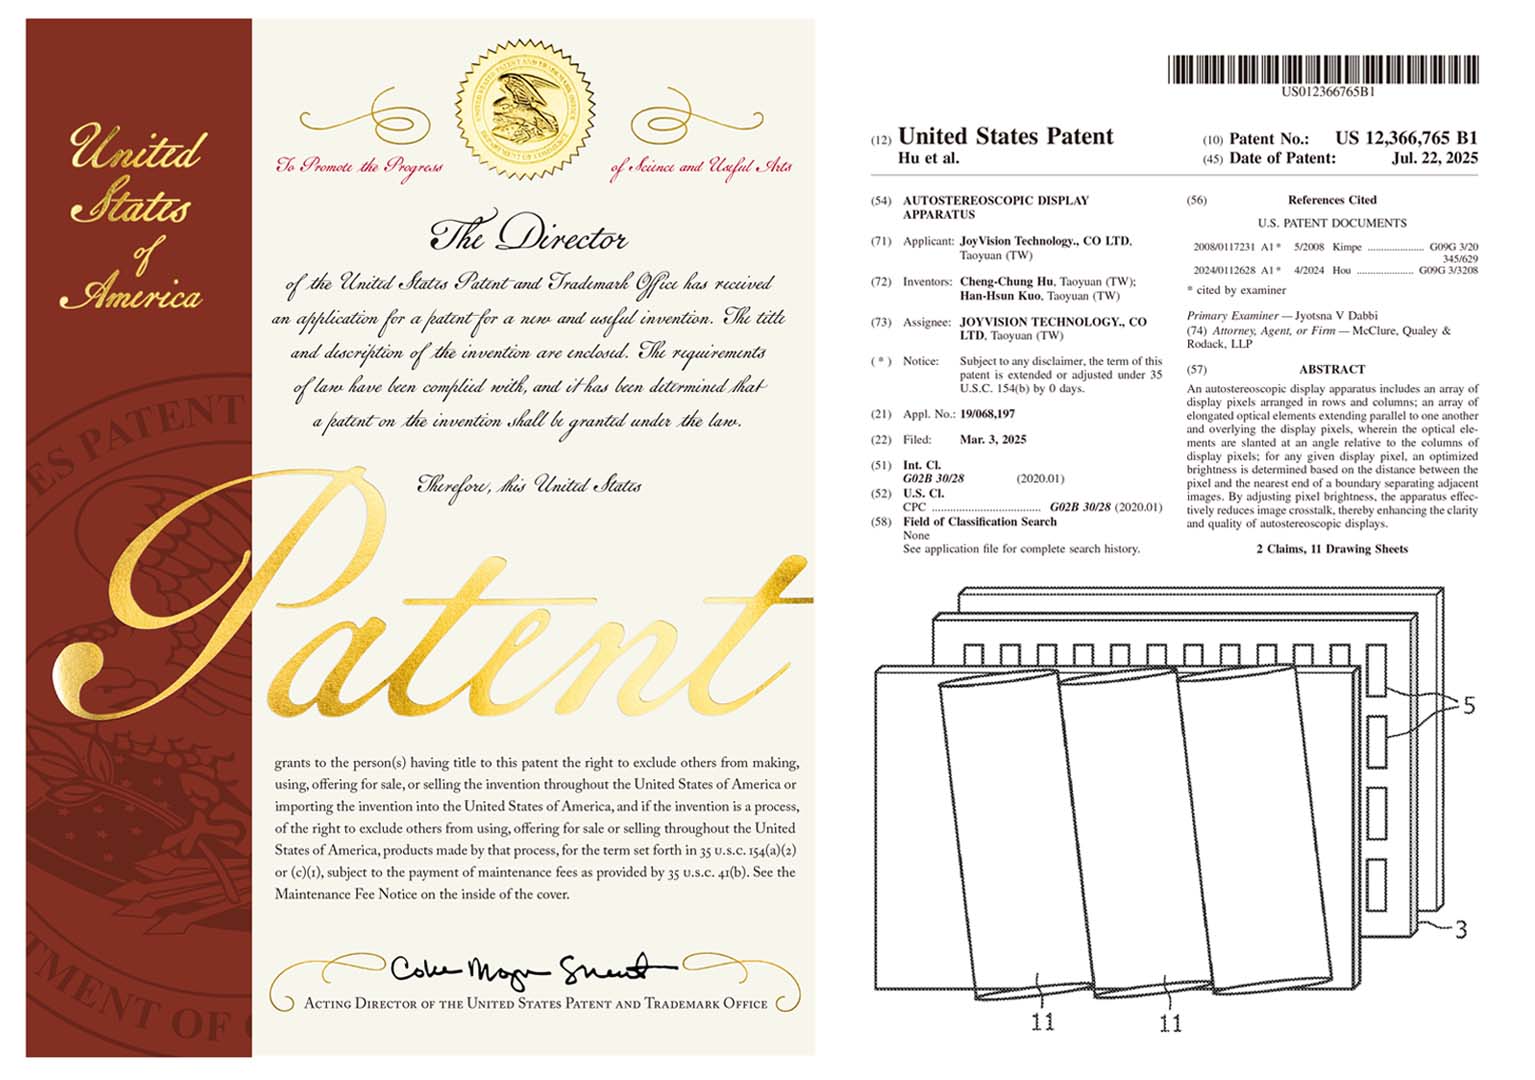 United
States
of
America
To Promote the Progress
of Science and Useful Arts
The Director
of the United States Patent and Trademark Office has received
an application for a patent for a new and useful invention. The title
and description of the invention are enclosed. The requirements
of law have been complied with, and it has been determined that
a patent on the invention shall be granted under the law.
Therefore, this United States
Patent
grants to the person(s) having title to this patent the right to exclude others from making,
using, offering for sale, or selling the invention throughout the United States of America or
importing the invention into the United States of America, and if the invention is a process,
of the right to exclude others from using, offering for sale or selling throughout the United
States of America, products made by that process, for the term set forth in 35 U.S.C. 154(a)(2)
or (c)(1), subject to the payment of maintenance fees as provided by 35 U.S.C. 41(b). See the
Maintenance Fee Notice on the inside of the cover.
Acting Director of the United States Patent and Trademark Office
US012366765B1
(12) United States Patent
Hu et al.
(10) Patent No.: US 12,366,765 B1
(45) Date of Patent: Jul. 22, 2025
(54) AUTOSTEREOSCOPIC DISPLAY
APPARATUS
(71) Applicant: JoyVision Technology., CO LTD,
Taoyuan (TW)
(72) Inventors: Cheng-Chung Hu, Taoyuan (TW);
Han-Hsun Kuo, Taoyuan (TW)
(73) Assignee: JOYVISION TECHNOLOGY., CO
LTD, Taoyuan (TW)
( * ) Notice: Subject to any disclaimer, the term of this
patent is extended or adjusted under 35
U.S.C. 154(b) by 0 days.
(21) Appl. No.: 19/068,197
(22) Filed: Mar. 3, 2025
(51) Int. Cl.
G02B 30/28 (2020.01)
(52) U.S. Cl.
CPC .................................... G02B 30/28 (2020.01)
(58) Field of Classification Search
None
See application file for complete search history.
(56) References Cited
U.S. PATENT DOCUMENTS
2008/0117231 A1* 5/2008 Kimpe ..................... G09G 3/20
345/629
2024/0112628 A1* 4/2024 Hou ..................... G09G 3/3208
* cited by examiner
Primary Examiner — Jyotsna V Dabbi
(74) Attorney, Agent, or Firm — McClure, Qualey &
Rodack, LLP
(57) ABSTRACT
An autostereoscopic display apparatus includes an array of
display pixels arranged in rows and columns; an array of
elongated optical elements extending parallel to one another
and overlying the display pixels, wherein the optical ele-
ments are slanted at an angle relative to the columns of
display pixels; for any given display pixel, an optimized
brightness is determined based on the distance between the
pixel and the nearest end of a boundary separating adjacent
images. By adjusting pixel brightness, the apparatus effec-
tively reduces image crosstalk, thereby enhancing the clarity
and quality of autostereoscopic displays.
2 Claims, 11 Drawing Sheets
5
3
11
11